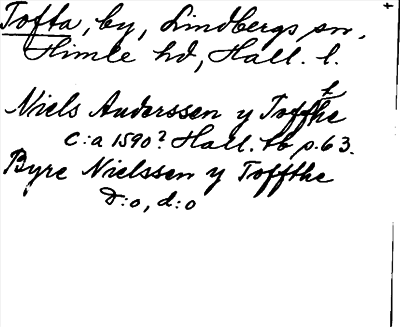 Tofta, by, Lindbergs sn,
Himle hd, Hall. l.
Niels Anderssen y Toffthe
C:a 1590? Hall. tb p. 63.
Byre Nielssen y Toffthe
D:o, d:o